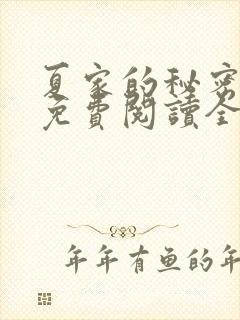 夏家的秘密
免費閱讀全
年年有鱼的年